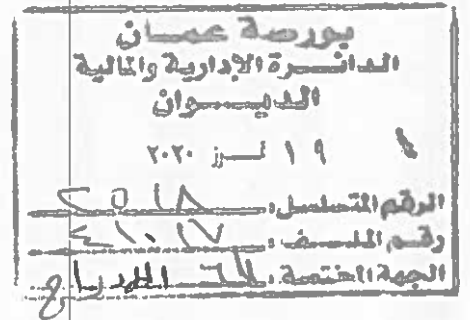 بورصة عمـــان
الدائـــرة الإدارية والمالية
الديـــوان
١٩ تمـوز ٢٠٢٠
الرقم المتسلسل : ٢٥١٨
رقــم الملــف :
الجهة المختصة :